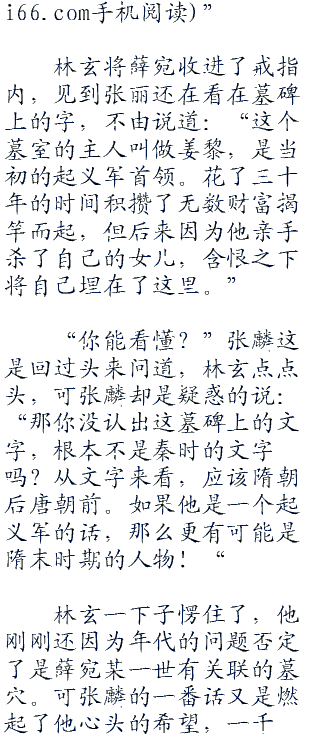 i66.com手机阅读)”
林玄将薛宛收进了戒指
内，见到张丽还在看在墓碑
上的字，不由说道：“这个
墓室的主人叫做姜黎，是当
初的起义军首领。花了三十
年的时间积攒了无数财富揭
竿而起，但后来因为他亲手
杀了自己的女儿，含恨之下
将自己埋在了这里。”
“你能看懂？”张麟这
是回过头来问道，林玄点点
头，可张麟却是疑惑的说：
“那你没认出这墓碑上的文
字，根本不是秦时的文字
吗？从文字来看，应该隋朝
后唐朝前。如果他是一个起
义军的话，那么更有可能是
隋末时期的人物！“
林玄一下子愣住了，他
刚刚还因为年代的问题否定
了是薛宛某一世有关联的墓
穴。可张麟的一番话又是燃
起了他心头的希望，一千